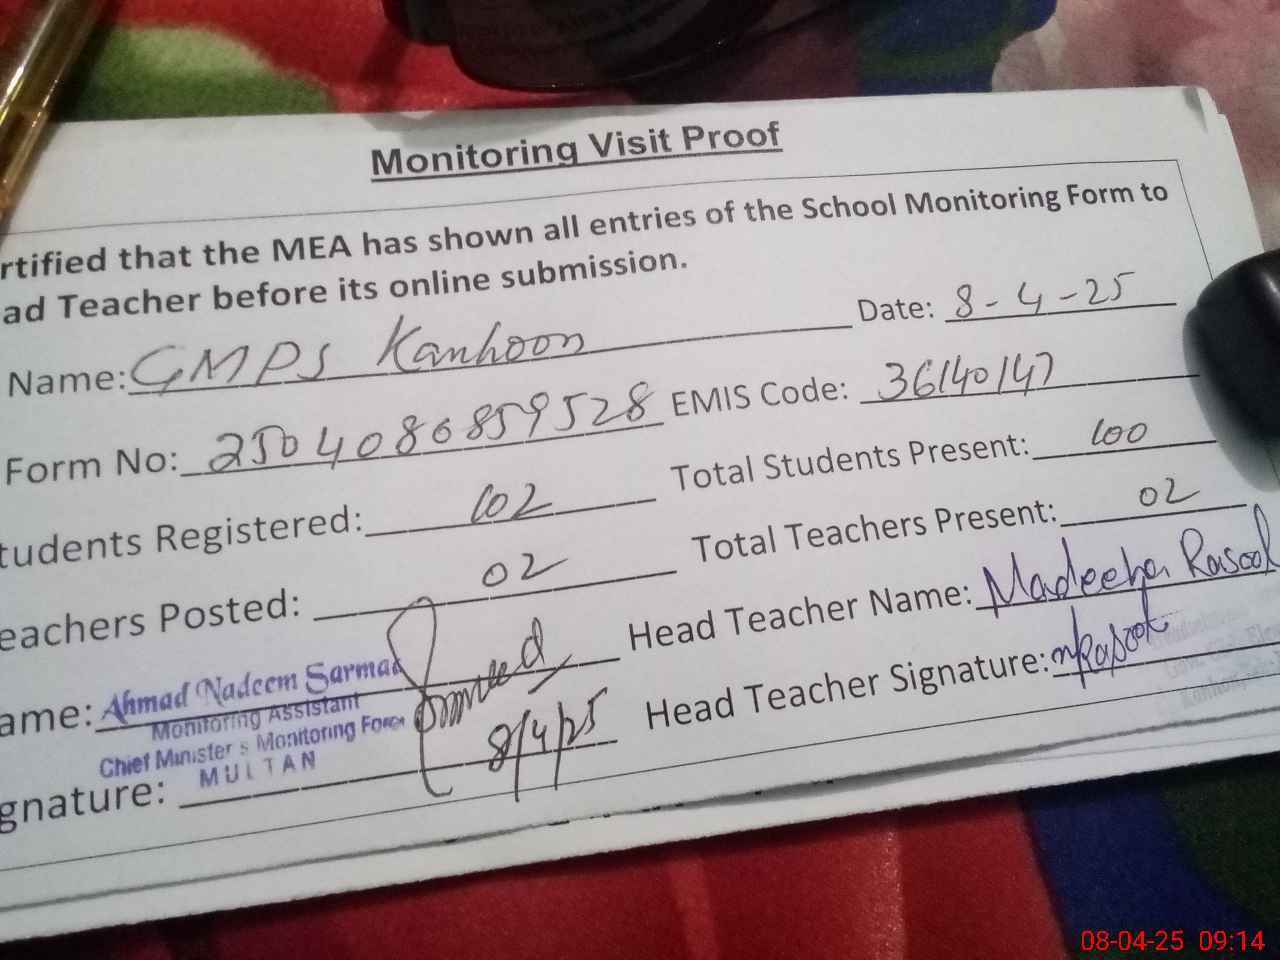 Monitoring Visit Proof
rtified that the MEA has shown all entries of the School Monitoring Form to
ad Teacher before its online submission.
Name: GMPS Kanhoon Date: 8-4-25
Form No: 2504080859528 EMIS Code: 36140147
tudents Registered: 102 Total Students Present: 100
eachers Posted: 02 Total Teachers Present: 02
ame: Ahmad Nadeem Sarmad Head Teacher Name: Madeeha Rasool
Monitoring Assistant
Chief Minister's Monitoring Force
MULTAN
gnature: 8/4/25 Head Teacher Signature: mRasool
08-04-25 09:14